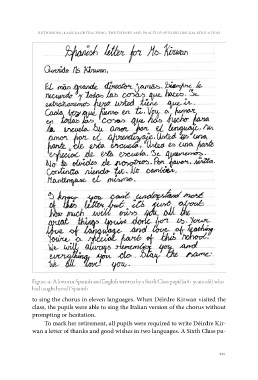 RETHINKING LANGUAGE TEACHING: THE THEORY AND PRACTICE OF PLURILINGUAL EDUCATION
Spanish letter for Ms. Kirwan
Querida Ms Kirwan,
El más grande director jamas. Siempre te
recuerdo y todas las cosas que haces. Te
extrañaremos pero usted tiene que ir.
Cada vez que pienso en ti. Voy a pensar
en todas las cosas que has hecho para
la escuela. Su amor por el lenguaje. Su
amor por el aprendizaje. Usted es una
parte de esta escuela. Usted es una parte
especial de esta escuela. Te queremos.
No te olvides de nosotros. Por favor, visita.
Continúa siendo tu. No cambies.
Mantengase el mismo.
I know you can't understand most
of this letter but its just about
how much we'll miss you, all the
great things you've done for us. Your
love of language and love of teaching
You're a special part of this school.
We will always remember you and
everything you do. Stay the same.
We all love you.
had taught herself Spanish
to sing the chorus in eleven languages. When Déirdre Kirwan visited the
class, the pupils were able to sing the Italian version of the chorus without
prompting or hesitation.
To mark her retirement, all pupils were required to write Déirdre Kir-
wan a letter of thanks and good wishes in two languages. A Sixth Class pu-